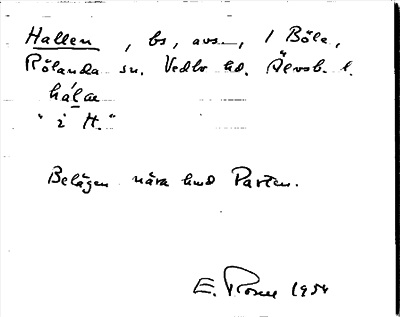 Hallen, bs, avs., 1 Böle,
Rölanda sn. Vedbo hd. Älvsb. l.
hálae
"i H."
Belägen nära hmd Parten.
E. Rosell 1954